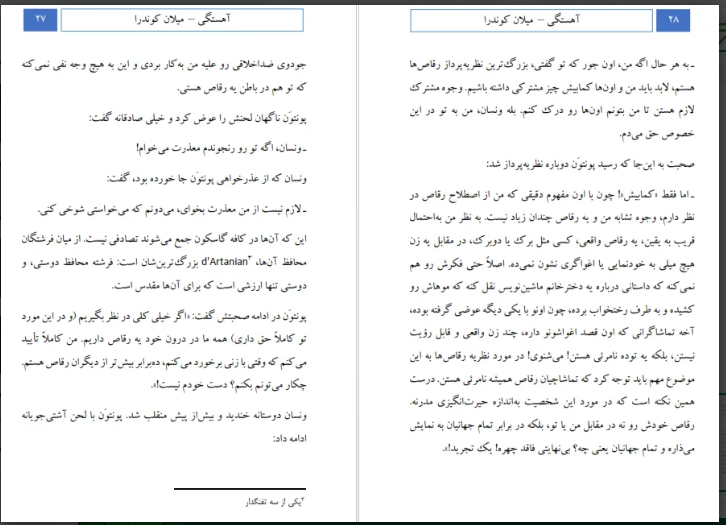 ۲۷
آهستگی – میلان کوندرا
جودوی ضداخلاقی رو علیه من به‌کار بردی و این به هیچ وجه نفی نمی‌کنه
که تو هم در باطن یه رقاص هستی.
پونتوَن ناگهان لحنش را عوض کرد و خیلی صادقانه گفت:
ـ ونسان، اگه تو رو رنجوندم معذرت می‌خوام!
ونسان که از عذرخواهی پونتوَن جا خورده بود، گفت:
ـ لازم نیست از من معذرت بخوای، می‌دونم که می‌خواستی شوخی کنی.
این که آن‌ها در کافه گاسکون جمع می‌شوند تصادفی نیست. از میان فرشتگان
محافظ آن‌ها، d'Artanian۲ بزرگ‌ترین‌شان است: فرشته محافظ دوستی، و
دوستی تنها ارزشی است که برای آن‌ها مقدس است.
پونتوَن در ادامه صحبتش گفت: «اگر خیلی کلی در نظر بگیریم (و در این مورد
تو کاملاً حق داری) همه ما در درون خود یه رقاص داریم. من کاملاً تأیید
می‌کنم که وقتی با زنی برخورد می‌کنم، ده‌برابر بیش‌تر از دیگران رقاص هستم.
چکار می‌تونم بکنم؟ دست خودم نیست!».
ونسان دوستانه خندید و بیش‌از پیش منقلب شد. پونتوَن با لحن آشتی‌جویانه
ادامه داد:
۲یکی از سه تفنگدار
۲۸
آهستگی – میلان کوندرا
ـ به هر حال اگه من، اون جور که تو گفتی، بزرگ‌ترین نظریه‌پرداز رقاص‌ها
هستم، لابد باید من و اون‌ها کمابیش چیز مشترکی داشته باشیم. وجوه مشترک
لازم هستن تا من بتونم اون‌ها رو درک کنم. بله ونسان، من به تو در این
خصوص حق می‌دم.
صحبت به این‌جا که رسید پونتوَن دوباره نظریه‌پرداز شد:
ـ اما فقط «کمابیش»! چون با اون مفهوم دقیقی که من از اصطلاح رقاص در
نظر دارم، وجوه تشابه من و یه رقاص چندان زیاد نیست. به نظر من به‌احتمال
قریب به یقین، یه رقاص واقعی، کسی مثل برک یا دوبرک، در مقابل یه زن
هیچ میلی به خودنمایی یا اغواگری نشون نمی‌ده. اصلاً حتی فکرش رو هم
نمی‌کنه که داستانی درباره یه دخترخانم ماشین‌نویس نقل کنه که موهاش رو
کشیده و به طرف رختخواب برده، چون اونو با یکی دیگه عوضی گرفته بوده،
آخه تماشاگرانی که اون قصد اغواشونو داره، چند زن واقعی و قابل رؤیت
نیستن، بلکه یه توده نامرئی هستن! می‌شنوی! در مورد نظریه رقاص‌ها به این
موضوع مهم باید توجه کرد که تماشاچیان رقاص همیشه نامرئی هستن. درست
همین نکته است که در مورد این شخصیت به‌اندازه حیرت‌انگیزی مدرنه.
رقاص خودش رو نه در مقابل من یا تو، بلکه در برابر تمام جهانیان به نمایش
می‌ذاره و تمام جهانیان یعنی چه؟ بی‌نهایتی فاقد چهره! یک تجرید!».